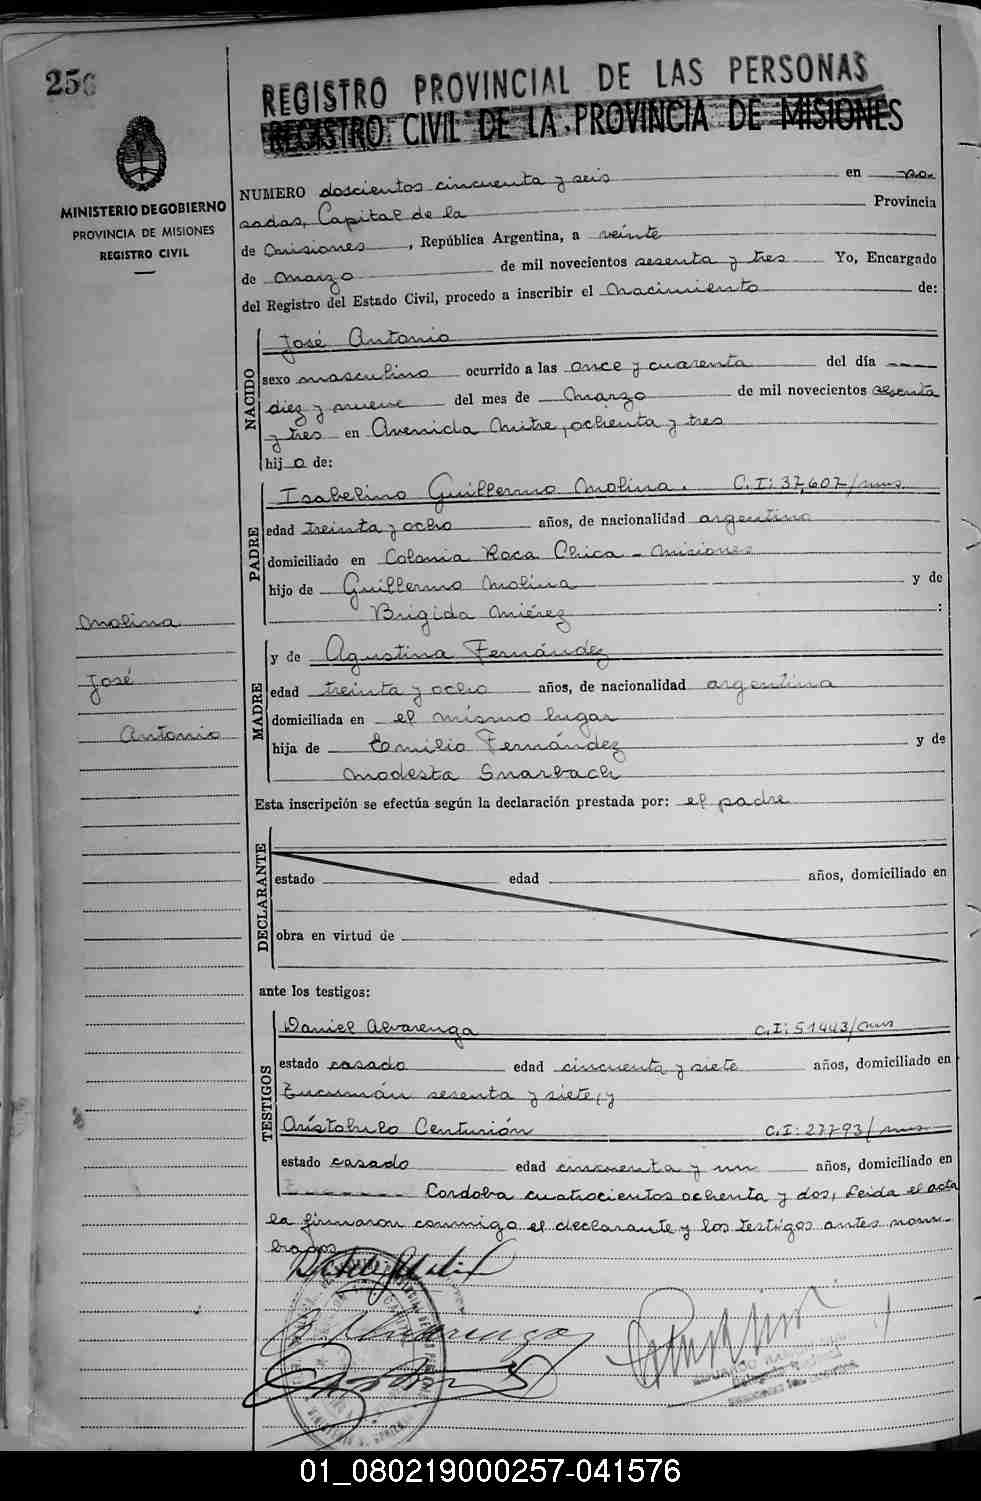 256
REGISTRO PROVINCIAL DE LAS PERSONAS
REGISTRO CIVIL DE LA PROVINCIA DE MISIONES
MINISTERIO DE GOBIERNO
PROVINCIA DE MISIONES
REGISTRO CIVIL
NUMERO doscientos cincuenta y seis en Po-
sadas, Capital de la Provincia
de Misiones, República Argentina, a veinte
de marzo de mil novecientos sesenta y tres Yo, Encargado
del Registro del Estado Civil, procedo a inscribir el nacimiento de:
NACIDO
José Antonio
sexo masculino ocurrido a las once y cuarenta del día
diez y nueve del mes de marzo de mil novecientos sesenta
y tres en Avenida Mitre, ochenta y tres
hijo de:
PADRE
Isabelino Guillermo Molina. C.I: 37,607/mnes
edad treinta y ocho años, de nacionalidad argentino
domiciliado en Colonia Roca Chica - Misiones
hijo de Guillermo Molina y de
Brigida Miérez :
Molina
José
Antonio
MADRE
y de Agustina Fernández
edad treinta y ocho años, de nacionalidad argentina
domiciliada en el mismo lugar
hija de Emilio Fernández y de
Modesta Snarbach
Esta inscripción se efectúa según la declaración prestada por: el padre
DECLARANTE
estado edad años, domiciliado en
obra en virtud de
ante los testigos:
TESTIGOS
Daniel Alvarenga C.I: 51443/mns
estado casado edad cincuenta y siete años, domiciliado en
Tucumán sesenta y siete, y
Arístobulo Centurión C.I: 27793/mns
estado casado edad cincuenta y un años, domiciliado en
Cordoba cuatrocientos ochenta y dos, Leida el acta
la firmaron conmigo el declarante y los testigos antes nom-
brados
01_080219000257-041576